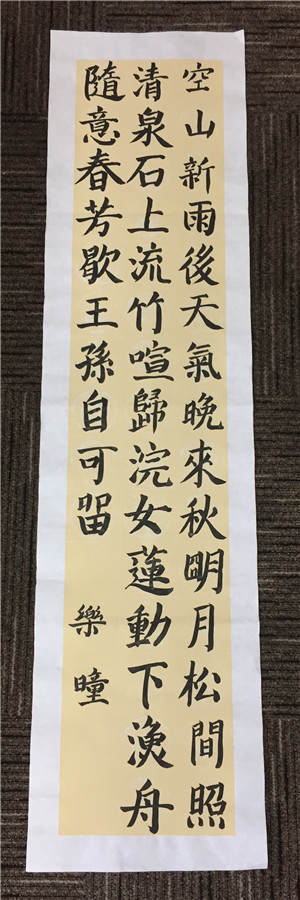 空山新雨後天氣晚來秋明月松間照
清泉石上流竹喧歸浣女蓮動下漁舟
隨意春芳歇王孫自可留
樂瞳